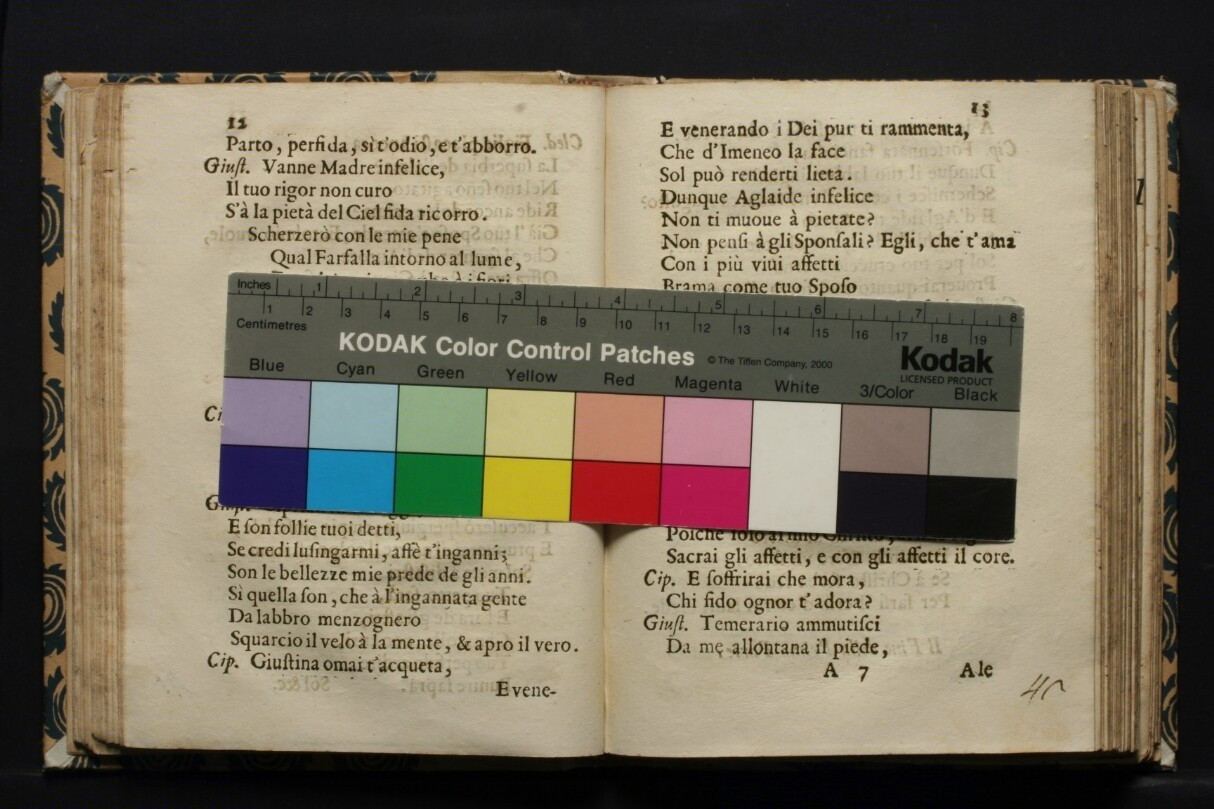 12
Parto, perfida, sì t'odio, e t'abborro.
Giuſt. Vanne Madre infelice,
Il tuo rigor non curo
S'à la pietà del Ciel fida ricorro.
Scherzerò con le mie pene
Qual Farfalla intorno al lume,
E ſon follie tuoi detti,
Se credi luſingarmi, affè t'inganni;
Son le bellezze mie prede de gli anni.
Sì quella ſon, che à l'ingannata gente
Da labbro menzognero
Squarcio il velo à la mente, & apro il vero.
Cip. Giuſtina omai t'acqueta,
E vene-
13
E venerando i Dei pur ti rammenta,
Che d'Imeneo la face
Sol può renderti lieta.
Dunque Aglaide infelice
Non ti muoue à pietate?
Non penſi à gli Sponſali? Egli, che t'ama
Con i più viui affetti
Brama come tuo Spoſo
Sacrai gli affetti, e con gli affetti il core.
Cip. E ſoffrirai che mora,
Chi fido ognor t'adora?
Giuſt. Temerario ammutiſci
Da me allontana il piede,
A 7 Ale
Inches 1 2 3 4 5 6 7 8
1 2 3 4 5 6 7 8 9 10 11 12 13 14 15 16 17 18 19
Centimetres
KODAK Color Control Patches © The Tiffen Company, 2000 Kodak
LICENSED PRODUCT
Blue Cyan Green Yellow Red Magenta White 3/Color Black